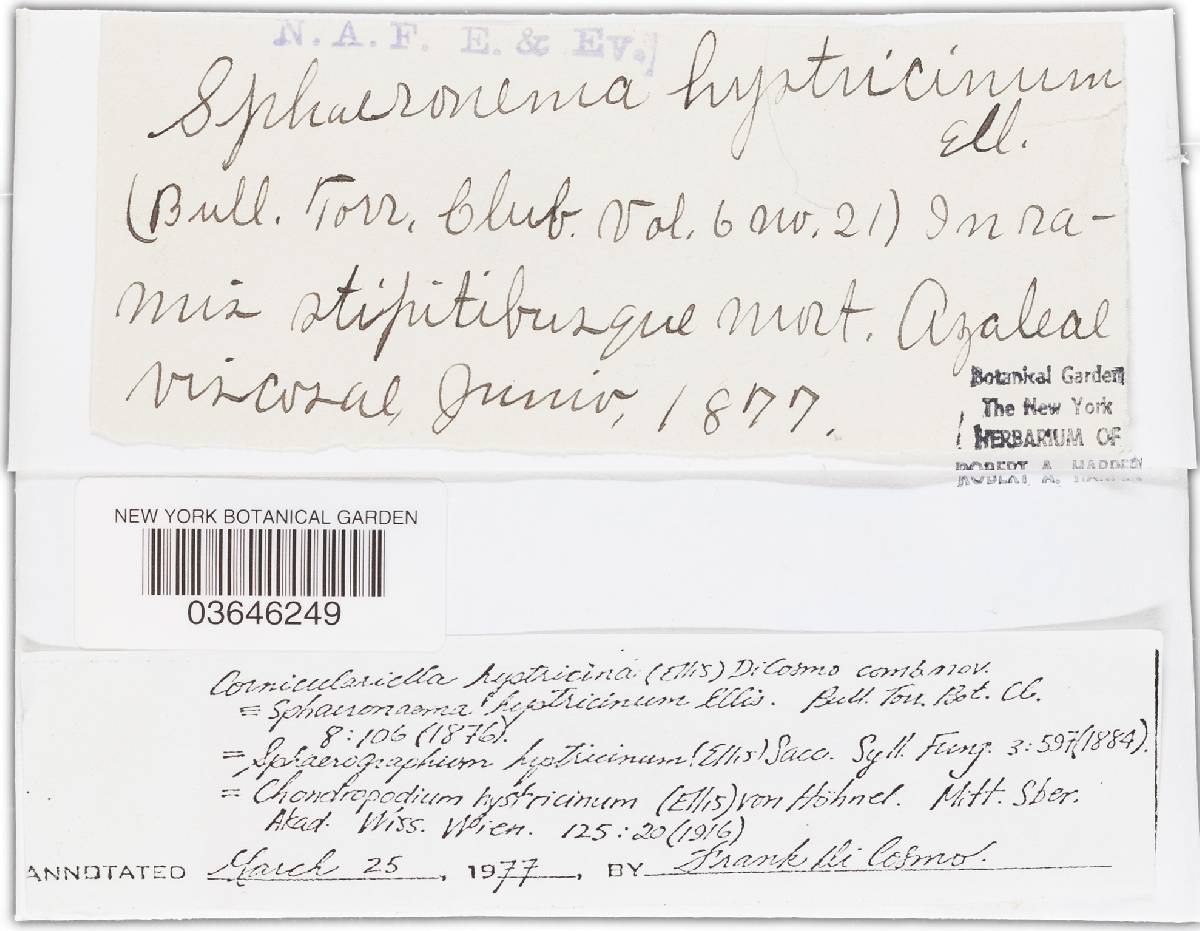 N. A. F. E. & Ev.
Sphaeronema hystricinum
Ell.
(Bull. Torr. Club. Vol. 6 no. 21) In ra-
mis stipitibusque mort. Azaleae
viscosae, Junio, 1877.
Botanical Garden
The New York
HERBARIUM OF
ROBERT A. HARPER
NEW YORK BOTANICAL GARDEN
03646249
Corniculariella hystricina (Ellis) DiCosmo comb. nov.
≡ Sphaeronaema hystricinum Ellis. Bull. Torr. Bot. Cl.
8:106 (1876).
= Sphaerographium hystricinum (Ellis) Sacc. Syll. Fung. 3:597 (1884).
= Chondropodium hystricinum (Ellis) von Höhnel. Mitt. Sber.
Akad. Wiss. Wien. 125:20 (1916)
ANNOTATED March 25, 1977, BY Frank Di Cosmo.